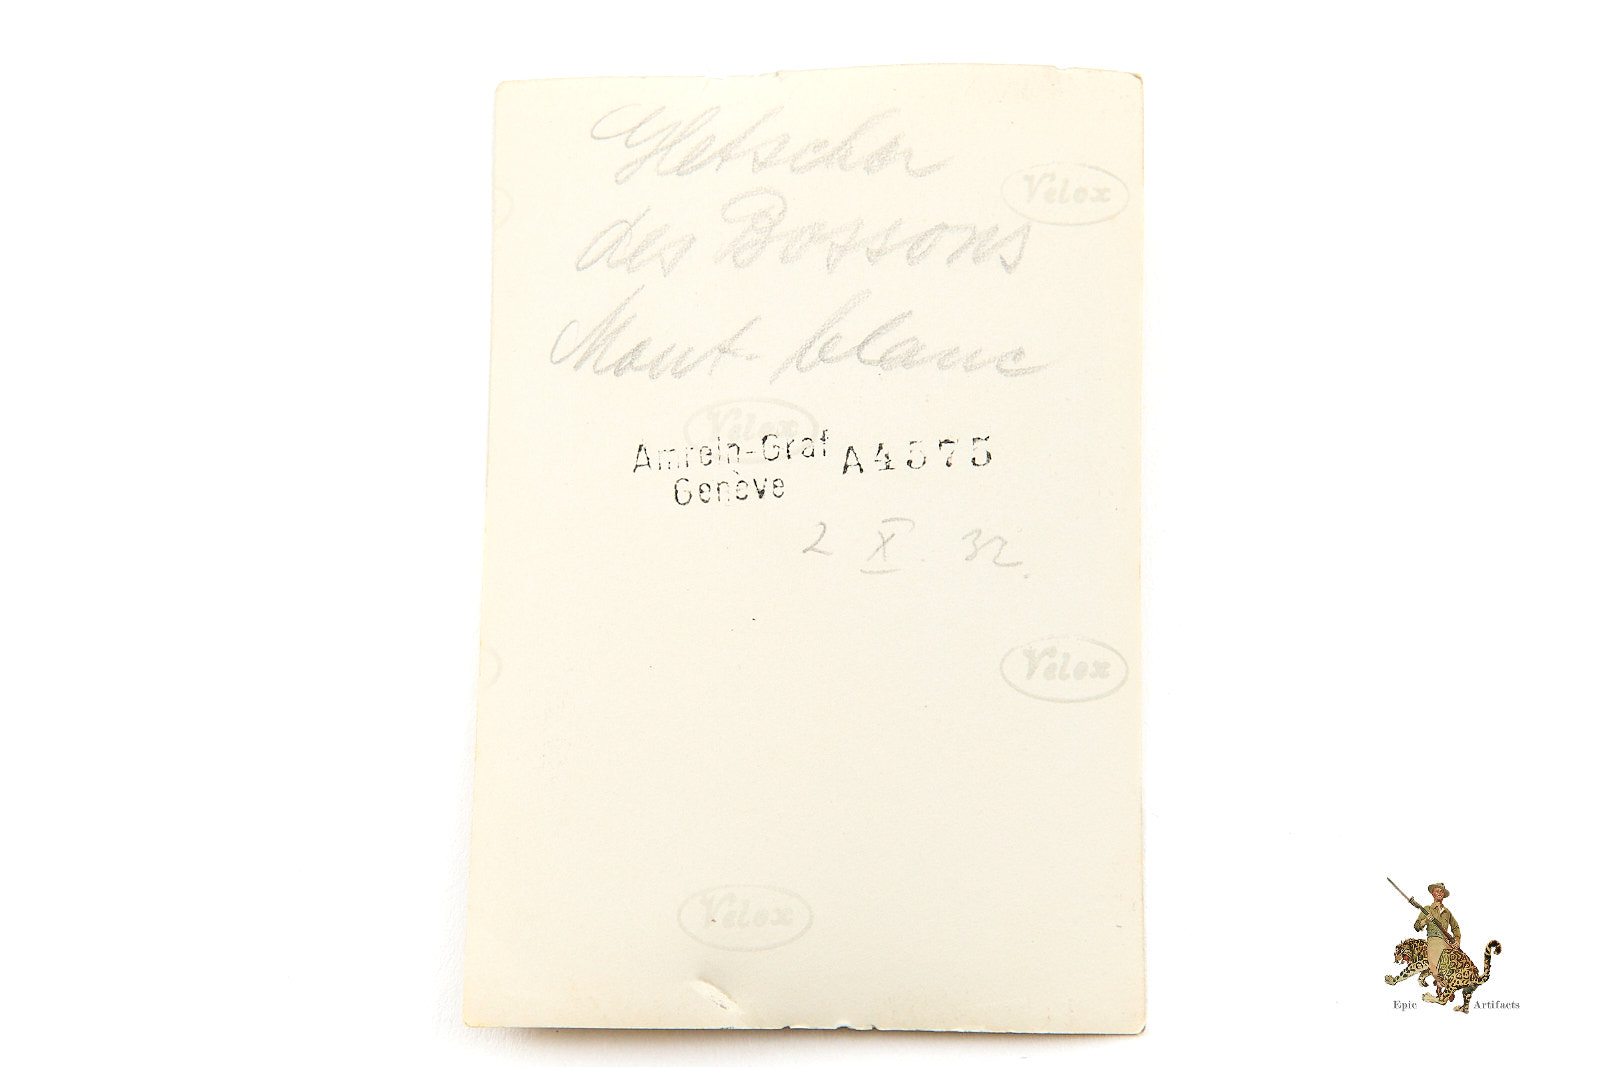 Gletscher
des Bossons
Mont blanc
Velox
Velox
Amrein-Graf A4575
Genève
2 X. 32.
Velox
Velox
Epic Artifacts